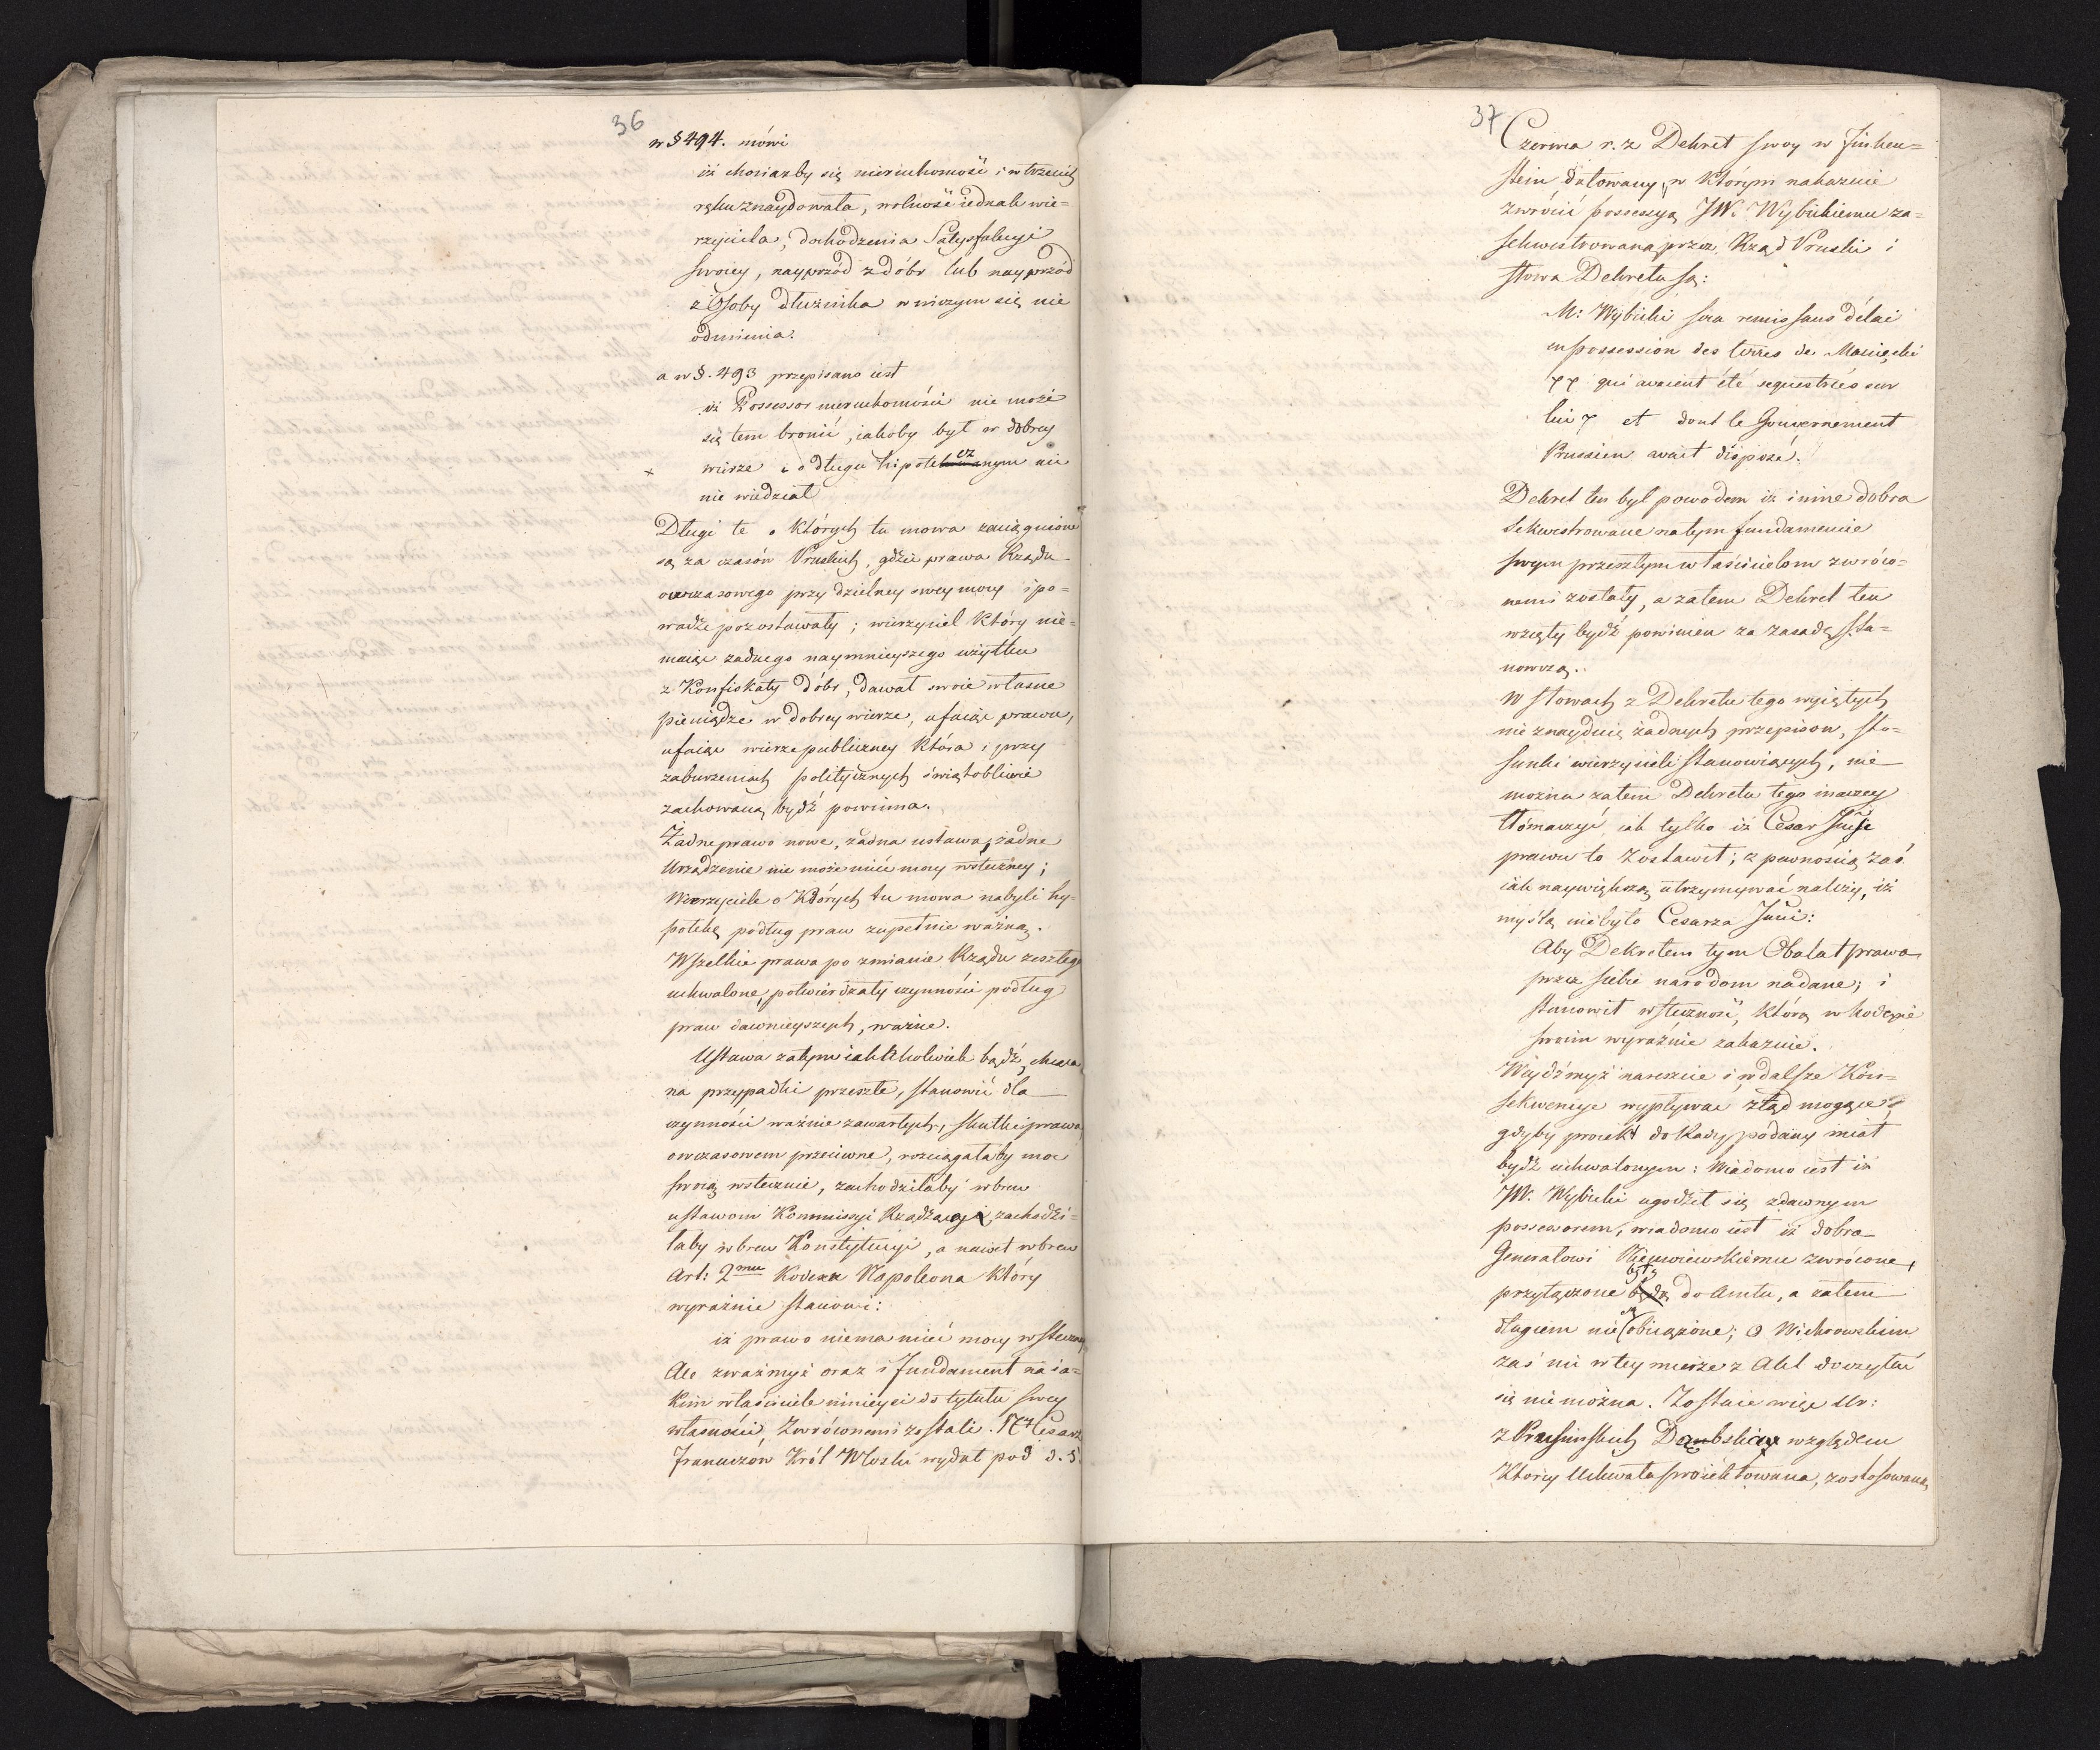 36
w § 494. mówi
iż chociażby się nieruchomość i w trzecich
ręku znaydowała, wolność iednak wie=
rzyciela, dochodzenia Satysfakcyi
swoiey, nayprzód z dóbr lub nayprzód
z Osoby dłużnika w niczym się nie
odmienia.
a w §. 493 przepisano iest
iż Possessor nieruchomości nie może
się tem bronić, iakoby był w dobrey
wierze i o długu hipotecznym nic
nie wiedział
Długi te o których tu mowa zaciągnione
są za czasów Pruskich, gdzie prawa Rządu
owczasowego przy dzielney swey mocy i po=
wadze pozostawały; wierzyciel który nie=
maiąc żadnego naymnieyszego użytku
z Konfiskaty dóbr, dawał swoie własne
pieniądze w dobrey wierze, ufaiąc prawu,
ufaiąc wierze publiczney która i przy
zaburzeniach politycznych świątobliwie
zachowaną bydź powinna.
Żadne prawo nowe, żadna ustawa, żadne
Urządzenie nie może mieć mocy wsteczney;
Wierzyciele o Których tu mowa nabyli hy-
potekę podług praw zupełnie ważną.
Wszelkie prawa po zmianie Rządu zeszłego
uchwalone, potwierdzały czynności podług
praw dawnieyszych, ważne.
Ustawa zatym iakakolwiek bądź, chcąca
na przypadki przeszłe, stanowić dla
czynności ważnie zawartych, skutki prawom
owczasowem przeciwne, rozciągałaby moc
swoią wstecznie, zachodziłaby wbrew
ustawom Kommissyi Rządzącey, zachodzi=
łaby wbrew Konstytucyi, a nawet wbrew
Art: 2mu Kodexu Napoleona który
wyraźnie stanowi:
iż prawo niema mieć mocy wsteczney
Ale zważmyż oraz i Fundament na ia=
kim właściciele ninieysi do tytułu swey
własności, Zwróconemi zostali. Cesarz
Francuzów Król Włoski wydał pod d. 5.
37
Czerwca r. z Dekret swoy w Finken=
stein datowany, w którym nakazuie
zwrócić possessyą JW. Wybickiemu za=
sekwestrowaną przez Rząd Pruski i
słowa Dekretu są:
M: Wybicki sera remis sans délai
en possession des terres de
qui avaient été sequestrées sur
lui et dont le Gouvernement
Prussien avait disposé.
Dekret ten był powodem iż i inne dobra
sekwestrowane na tym fundamencie
swym przeszłym właścicielom zwróco=
nemi zostały, a zatem Dekret ten
wzięty bydź powinien za zasadę sta=
nowczą.
W słowach z Dekretu tego wyiętych
nie znayduię żadnych przepisow, sto=
sunki wierzycieli stanowiących, nie
można zatem Dekretu tego inaczey
tłómaczyć, iak tylko iż Cesarz
prawu to zostawił; z pewnością zaś
iak naywiększą utrzymywać należy, iż
myślą niebyło Cesarza Jmci:
Aby Dekretem tym Obalał prawa
przez siebie narodom nadane; i
stanowił wsteczność, którą w kodexie
swoim wyraźnie zakazuie.
Weydźmyż nareszcie i w dalsze Kon=
sekwencye wypływać ztąd mogące
gdyby proiekt do Rady podany miał
bydź uchwalonym: Wiadomo iest iż
JW. Wybicki ugodził się z dawnym
possessorem, wiadomo iest iż dobra
Generałowi Niemoiewskiemu zwrócone,
przyłączone były do Amtu, a zatem
długiem nie są obciążone; O Wichrowskim
zaś nic w tey mierze z Akt doczytać
się nie można. Zostaie więc
z Dąmbskia względem
Którey Uchwała proiektowana, zostosowaną